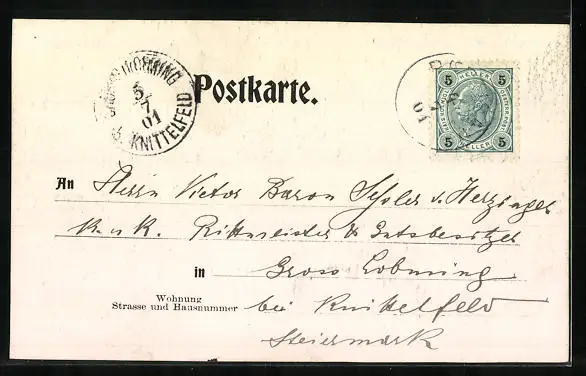 GROSSLOBMING
5
7
01
B. KNITTELFELD
Postkarte.
5 HELLER 5
5 HELLER 5
01
An Herrn Victor Baron Sessler v. Herzinger
k. u. k. Rittmeister & Gutsbesitzer
in Gross Lobming
Wohnung
Strasse und Hausnummer bei Knittelfeld
Steiermark